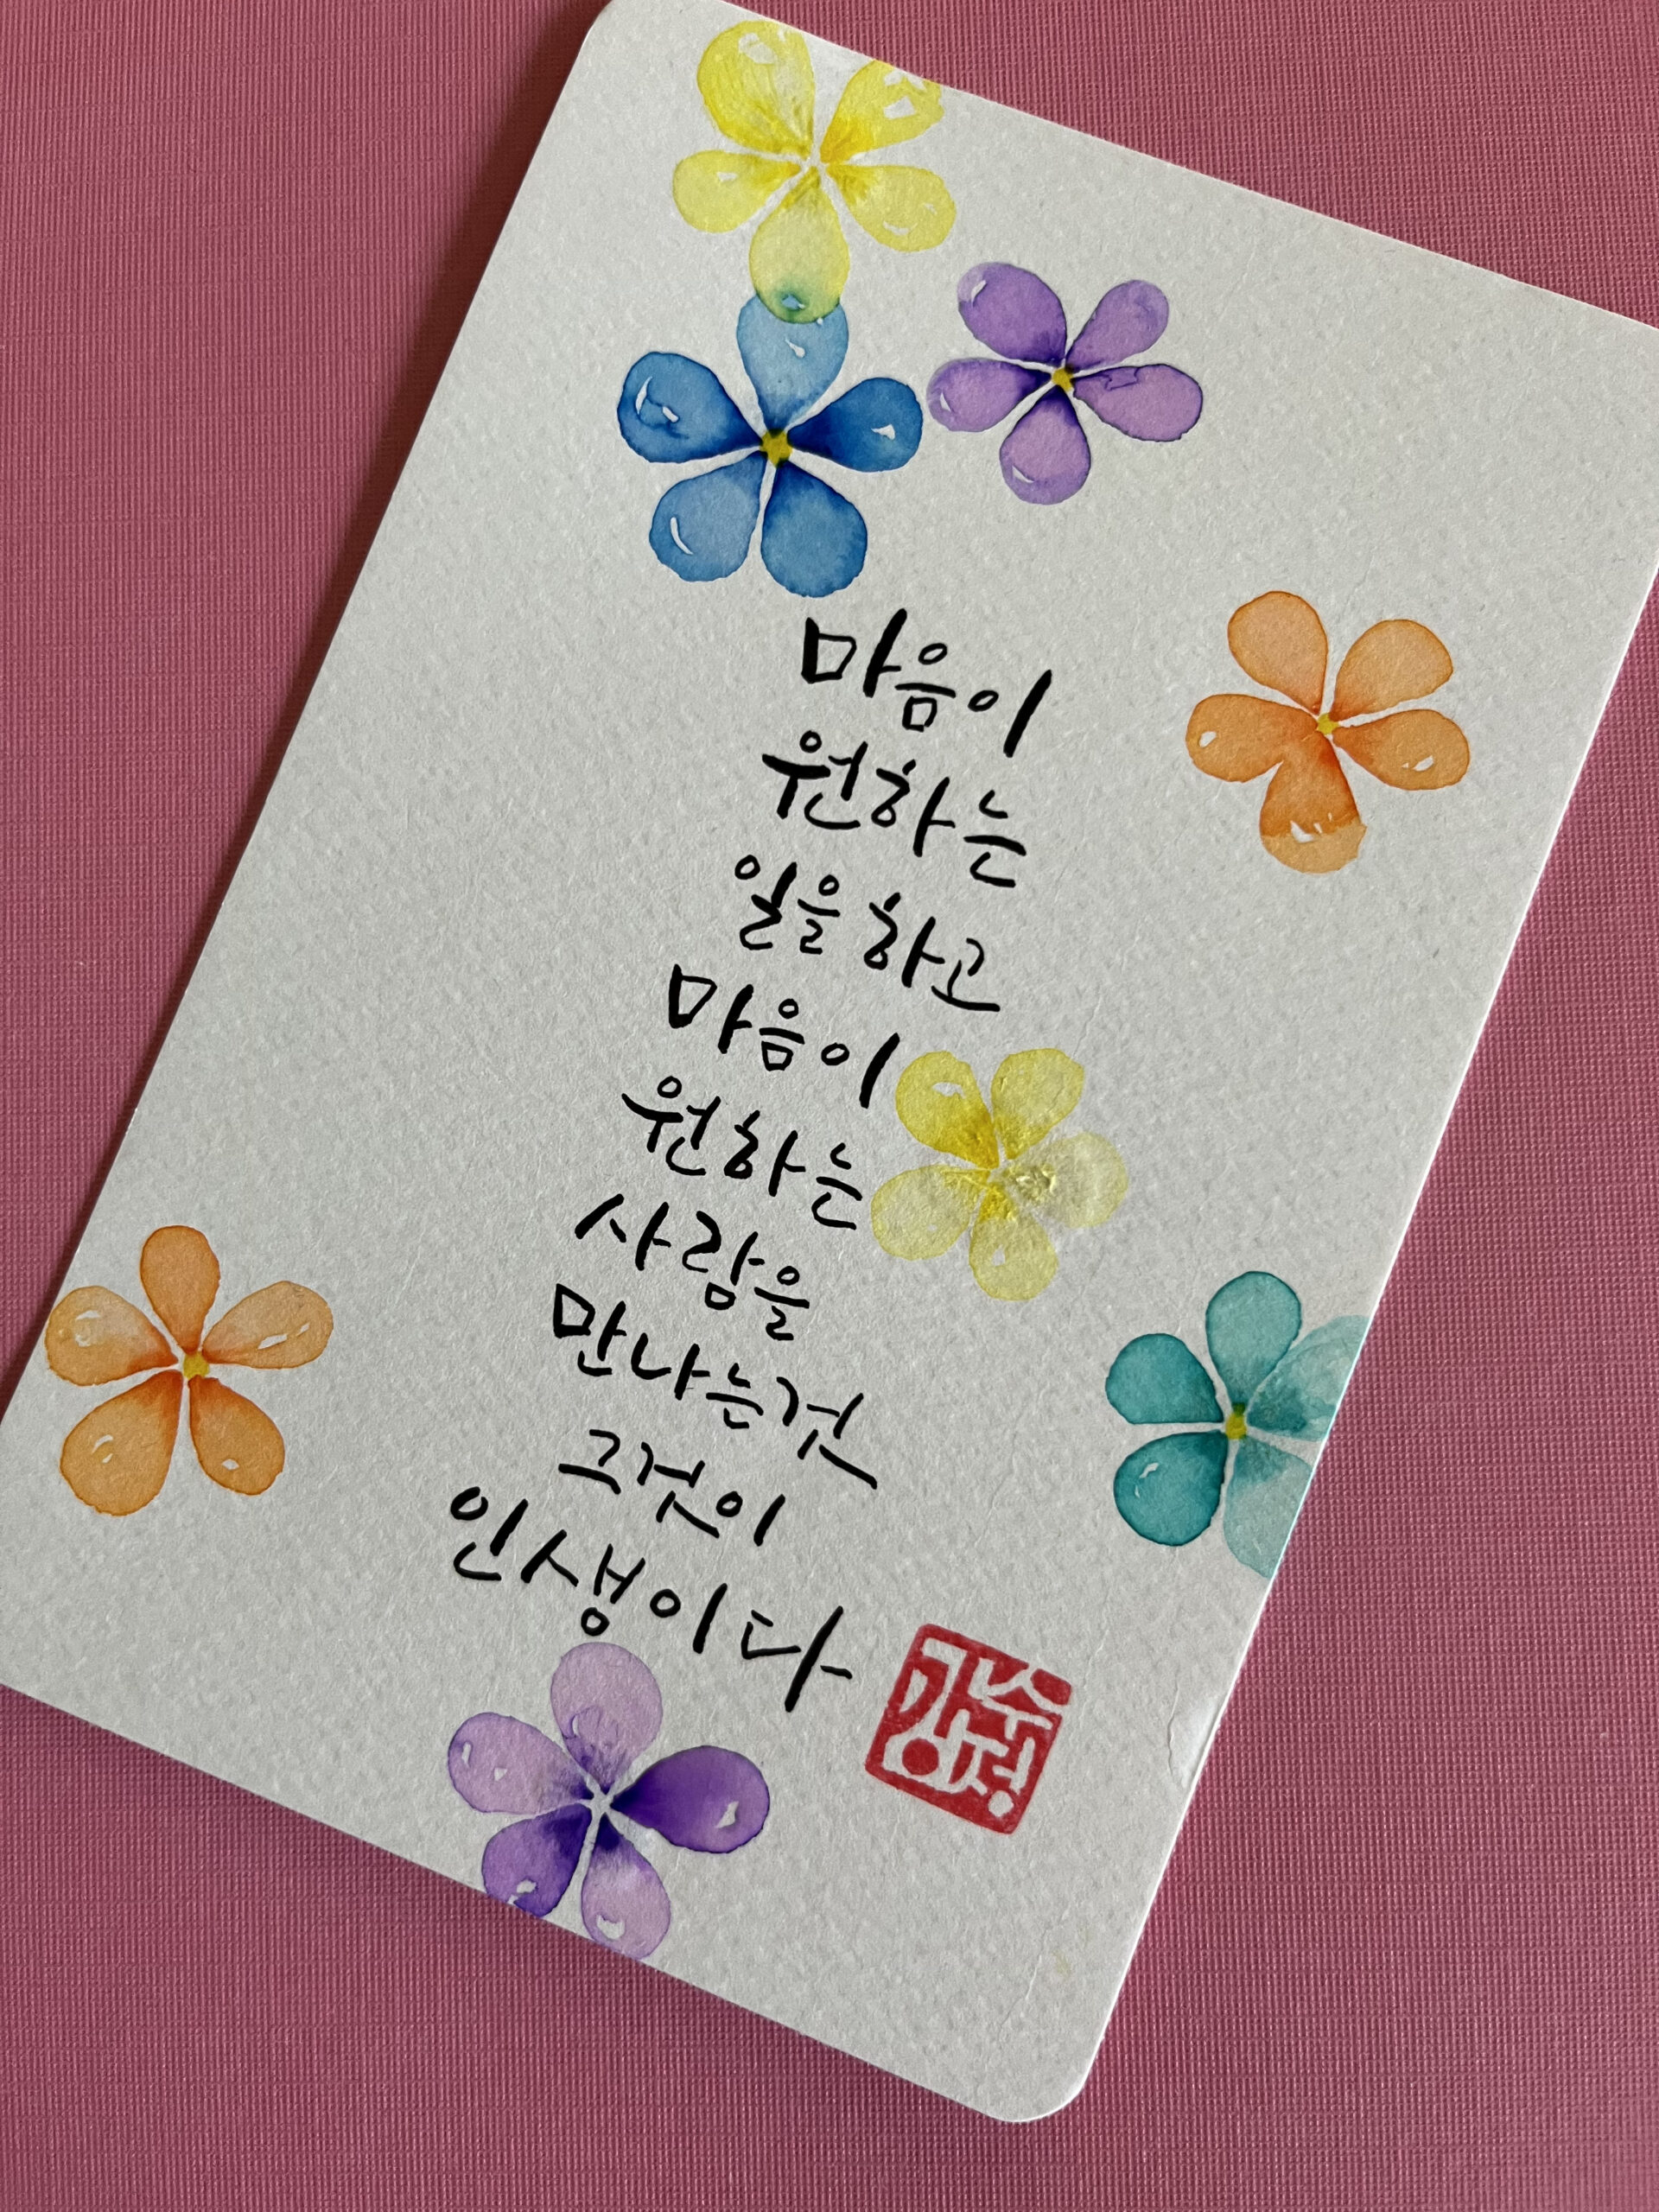 마음이
원하는
일을 하고
마음이
원하는
사람을
만나는것
그것이
인생이다
강수정